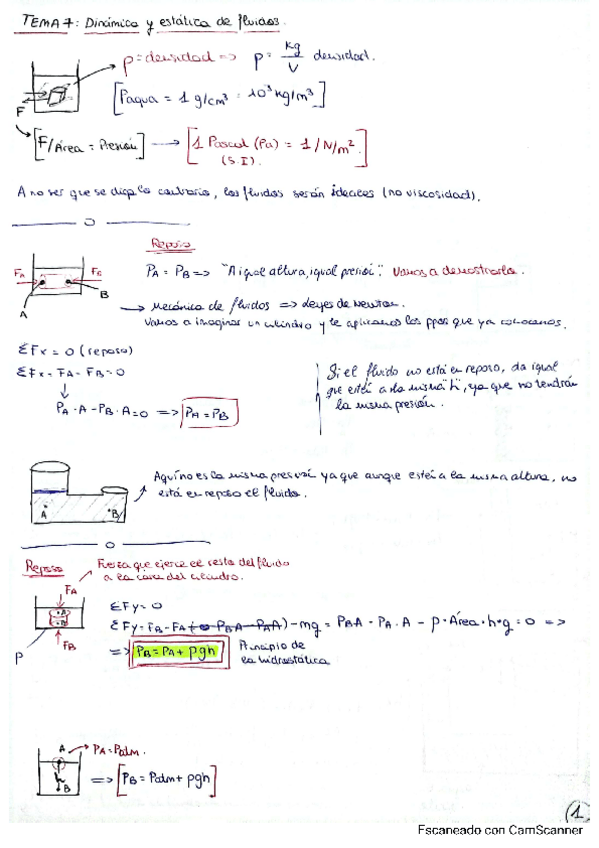 TEMA 7: Dinámica y estática de fluidos.
ρ = densidad => ρ = kg/V densidad.
[ρagua = 1 g/cm³ = 10³ kg/m³]
F
[F/Área = Presión] → [1 Pascal (Pa) = 1/N/m²]
(S.I).
A no ser que se diga lo contrario, los fluidos serán ideales (no viscosidad).
O
Reposo
FA FB
PA = PB => "A igual altura, igual presión". Vamos a demostrarlo.
A B
→ Mecánica de fluidos => Leyes de Newton.
Vamos a imaginar un cilindro y le aplicamos los ppos que ya conocemos.
ΣFx = 0 (reposo)
ΣFx = FA - FB = 0
PA · A - PB · A = 0 => PA = PB
Si el fluido no está en reposo, da igual
que esté a la misma "h", ya que no tendrán
la misma presión.
Aquí no es la misma presión ya que aunque esté a la misma altura, no
está en reposo el fluido.
A B
O
Reposo
Fuerza que ejerce el resto del fluido
a la cara del cilindro.
FA
A
B
FB
ρ
ΣFy = 0
ΣFy = FB - FA - mg = PB A - PA · A - ρ · Área · h · g = 0 =>
=> PB = PA + ρgh
Principio de
la hidrostática
A PA = Patm.
h
B
=> [PB = Patm + ρgh]
1
Escaneado con CamScanner